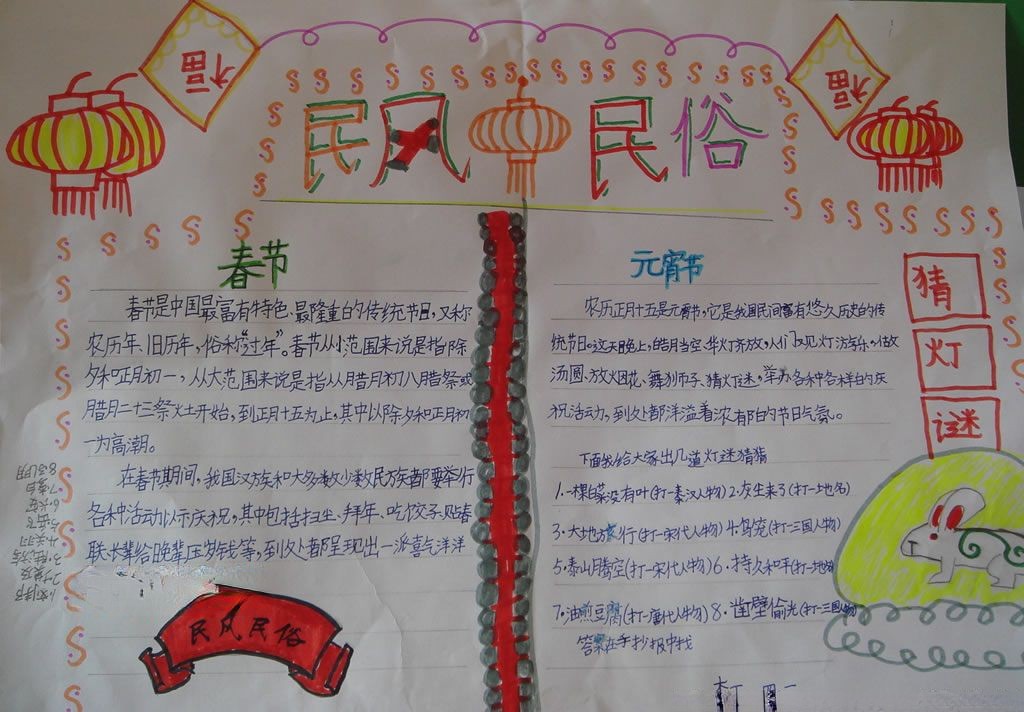 福
福
民风民俗
春节
春节是中国最富有特色、最隆重的传统节日,又称
农历年、旧历年,俗称“过年”。春节从小范围来说是指除
夕和正月初一,从大范围来说是指从腊月初八腊祭或
腊月二十三祭灶开始,到正月十五为止,其中以除夕和正月初
一为高潮。
在春节期间,我国汉族和大多数少数民族都要举行
各种活动以示庆祝,其中包括扫尘、拜年、吃饺子、贴春
联、长辈给晚辈压岁钱等,到处都呈现出一派喜气洋洋
民风民俗
元宵节
农历正月十五是元宵节,它是我国民间富有悠久历史的传
统节日。这天晚上,皓月当空,华灯齐放,人们观灯游乐,做
汤圆、放烟花、舞狮子、猜灯谜,举办各种各样的庆
祝活动,到处都洋溢着浓郁的节日气氛。
下面我给大家出几道灯谜猜猜
1.一棵白菜没有叶(打一秦汉人物) 2.灰尘来了(打一地名)
3.大地放行(打一宋代人物) 4.鸟宠(打一三国人物)
5.泰山腾空(打一宋代人物) 6.持久和平(打一地名)
7.油煎豆腐(打一唐代人物) 8.凿壁偷光(打一三国人物)
答案在手抄报中找
猜
灯
谜